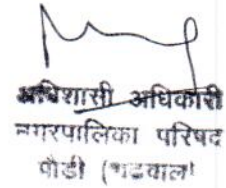 अधिशासी अधिकारी
नगरपालिका परिषद
पौडी (गढवाल)